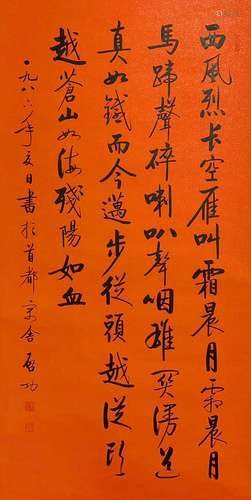 西風烈长空雁叫霜晨月霜晨月
馬蹄聲碎喇叭聲咽雄関漫道
真如鐵而今邁步從頭越從頭
越蒼山如海殘陽如血
一九八六年夏日書於首都寓舍啓功